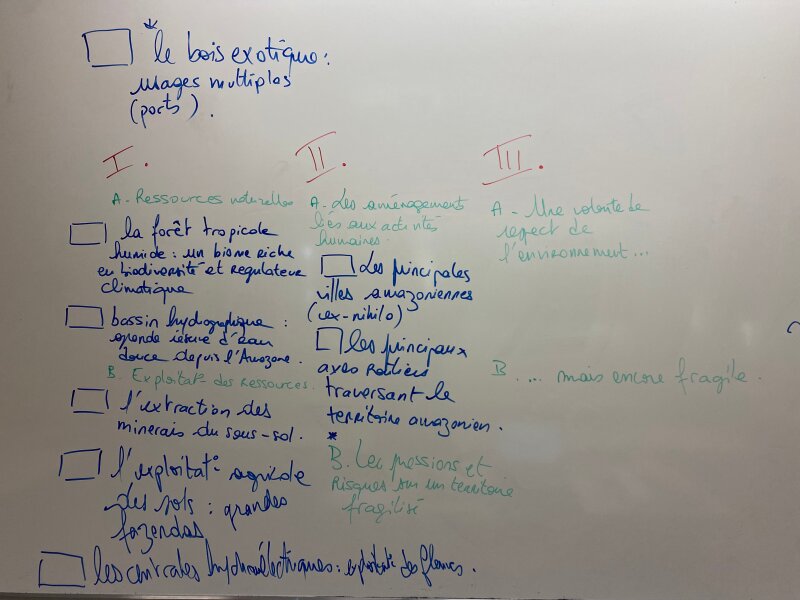 * le bois exotique :
usages multiples
(ports).
I.
A - Ressources naturelles
la forêt tropicale
humide : un biome riche
en biodiversité et régulateur
climatique
bassin hydrographique :
grande réserve d'eau
douce depuis l'Amazone.
B. Exploitat° des Ressources.
l'extraction des
minerais du sous-sol.
l'exploitat° agricole
des sols : grandes
fazendas
les centrales hydroélectriques : exploitat° des fleuves.
II.
A. Les aménagements
liés aux activités
humaines.
Les principales
villes amazoniennes
(ex-nihilo)
les principaux
axes routiers
traversant le
territoire amazonien.
*
B. Les pressions et
Risques sur un territoire
fragilisé
III.
A - Une volonté de
respect de
l'environnement...
B. ... mais encore fragile.